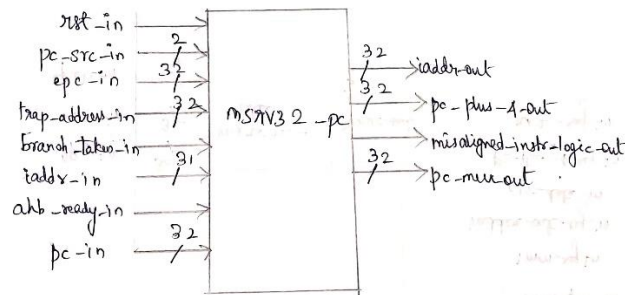 rst_in
pc_src_in
2
epc_in
32
trap_address_in
32
branch_taken_in
iaddr_in
31
ahb_ready_in
pc_in
32
msrv32_pc
32
iaddr_out
32
pc_plus_4_out
misaligned_instr_logic_out
32
pc_mux_out